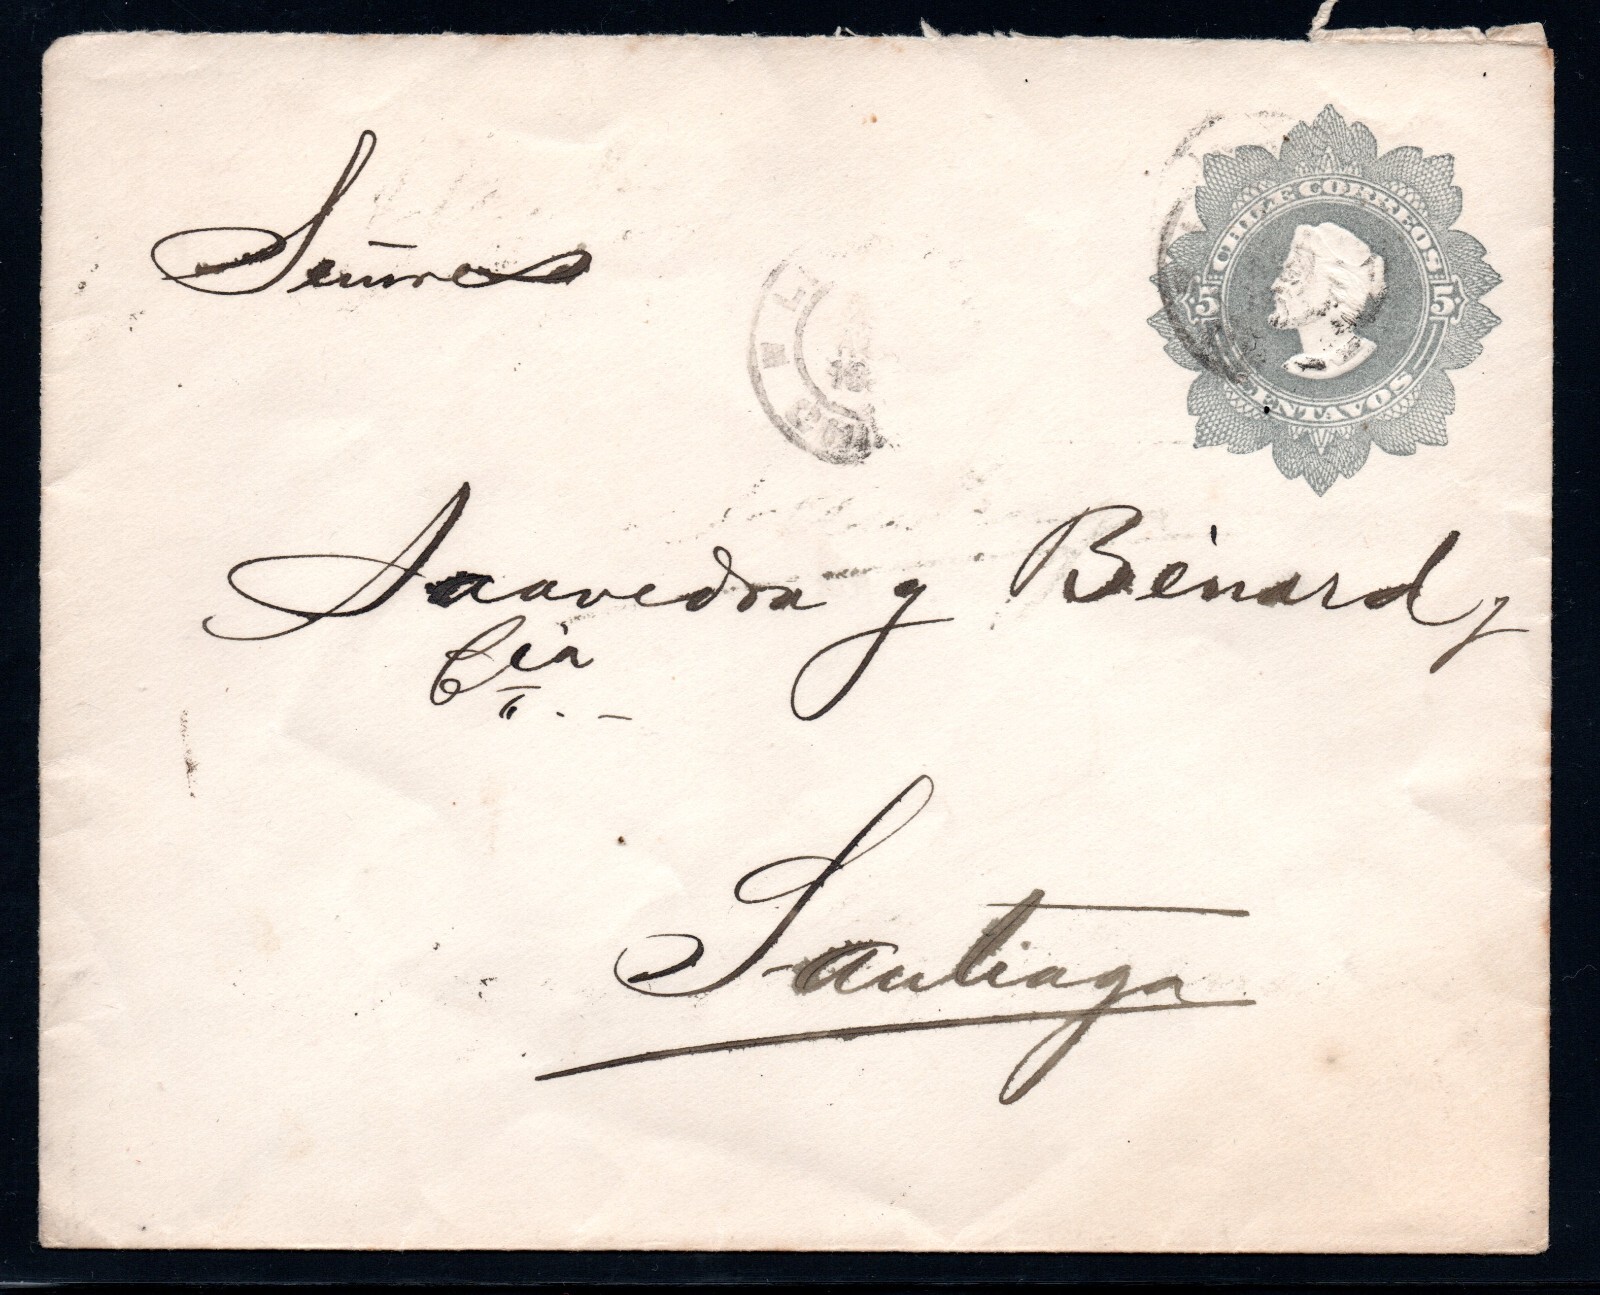 Señores
CHILE CORREOS
5 5
CENTAVOS
Saavedra y Bénard y
Cia
Santiago